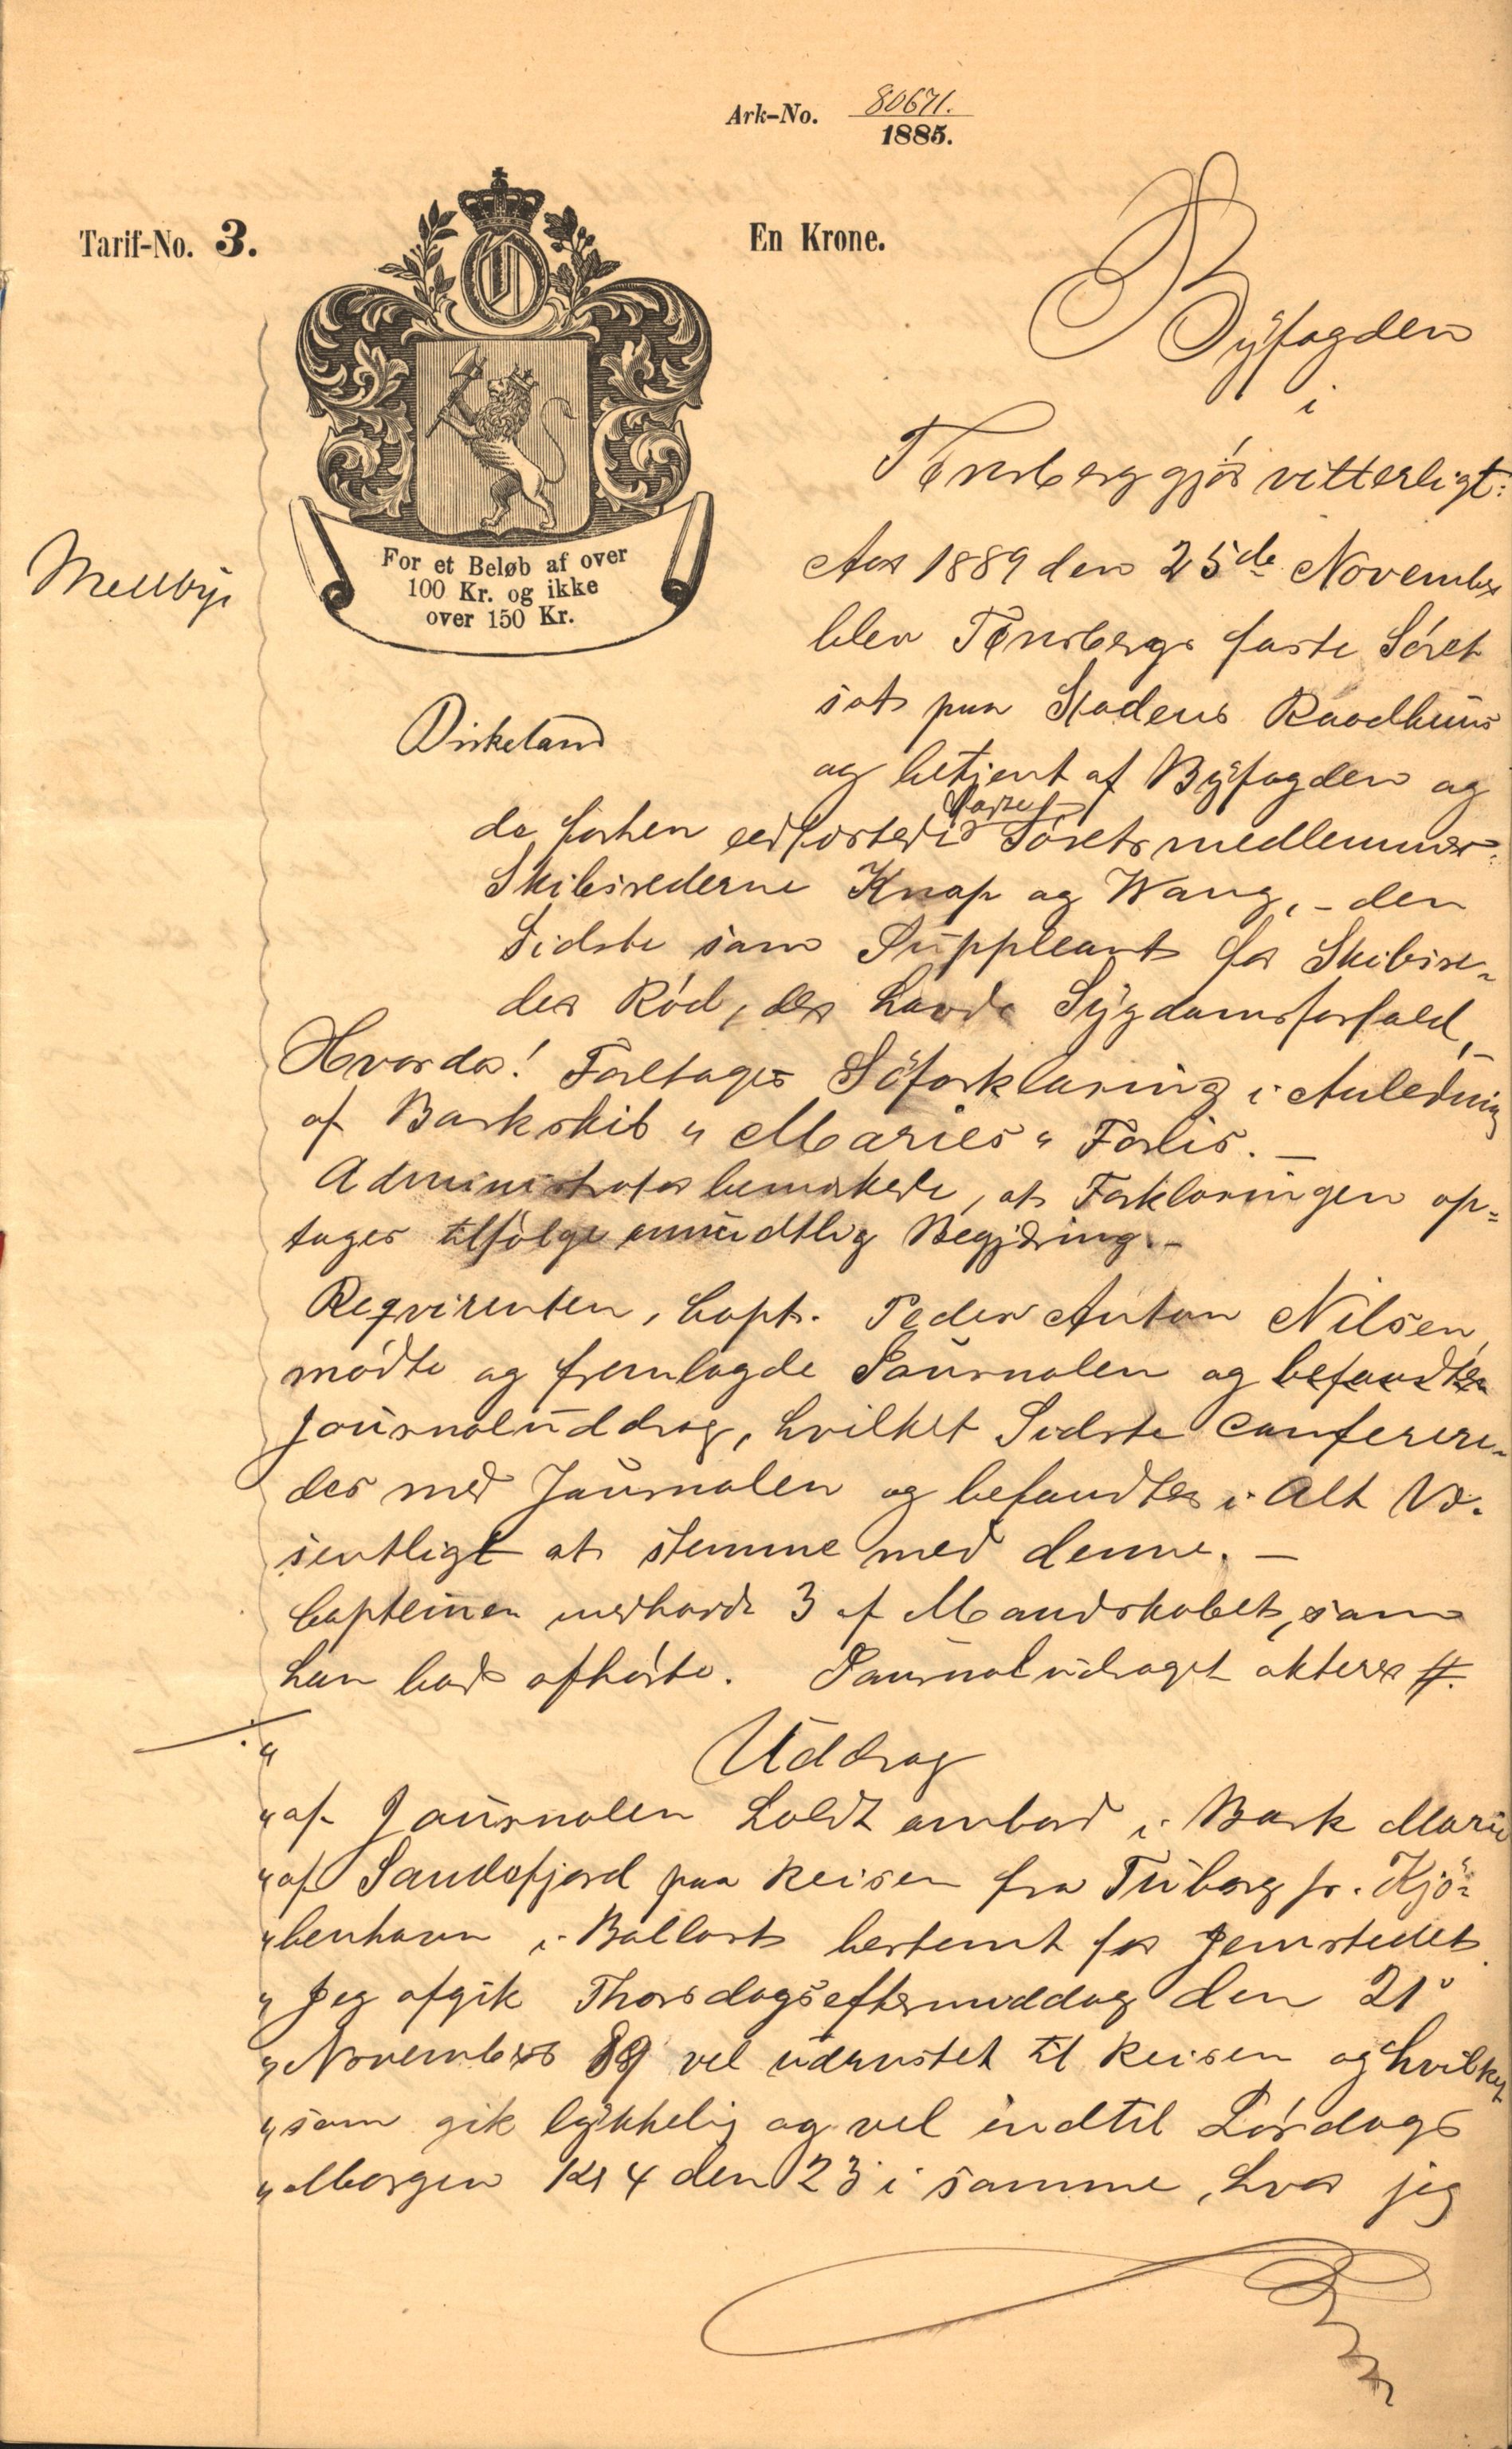 Ark-No. 80671.
1885.
Tarif-No. 3.
En Krone.
For et Beløb af over
100 Kr. og ikke
over 150 Kr.
Mellbye
Birkeland
Byfogden
i
Tønsberg gjør vitterligt:
Aar 1889 den 25de November
blev Tønsbergs faste Söret
sat paa Stadens Raadhuus
og betjent af Byfogden og
de forhen edfæstede faste Söretsmedlemmer:
Skibsrederne Knap og Wang, - den
Sidste som Suppleant for Skibsre-
der Röd, der havde Sygdomsforfald,
Hvorda! Foretages Söforklaring i Anledning
af Barkskib "Maries" Forlis. -
Administrator bemærkede, at Forklaringen op-
tages tilfölge mundtlig Begjæring. -
Reqvirenten, Capt. Peder Anton Nilsen
mödte og fremlagde Journalen og befandtes
Journaluddrag, hvilket Sidste confere-
des med Journalen og befandtes i Alt Væ-
sentligt at stemme med denne. -
Capteinen medhavde 3 af Mandskabet, som
han bad afhörte. Journaludraget akteres #.
Uddrag
"af Journalen holdt ombord i Bark Marie
"af Sandefjord paa Reisen fra Tuborg pr. Kjö-
"benhavn i Ballast bestemt for Hjemstedet.
"Jeg afgik Thorsdagseftermiddag den 21'
"November 89 vel udrustet til Reisen og hvilket
"som gik lykkelig og vel indtil Lördags
"Morgen Kl 4 den 23' i samme, hvor jeg